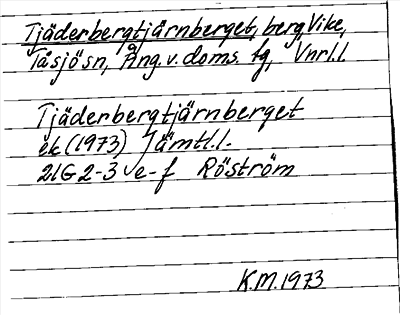 Tjäderbergtjärnberget, berg, Vike,
Tåsjö sn, Ång. v. doms. tg, Vnrl.l.
Tjäderbergtjärnberget
ek (1973) Jämtl.l.
21G 2-3 e-f Röström
K.M. 1973